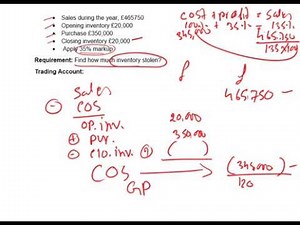 • Sales during the year, £465750
• Opening inventory £20,000
• Purchase £350,000
• Closing inventory £20,000
• Apply 35% markup
Requirement: Find how much inventory stolen?
Trading Account:
cost + profit = sales
100% + 35% = 135%
345,000
465,750
135 × 100
£ £
Sales 465,750
COS
op. inv. 20,000
+ pur. 350,000
- clo. inv. ( )
COS (345,000)
GP 120